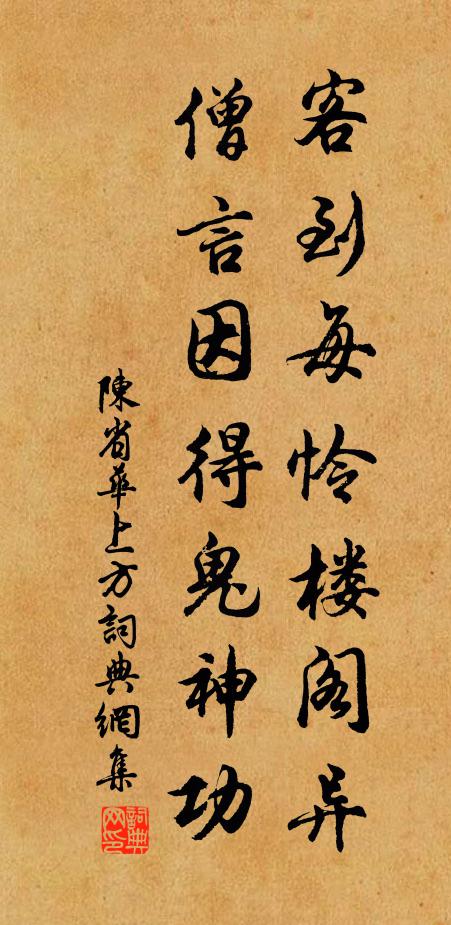 客到每怜楼阁异
僧言因得鬼神功
陳省華上方詞典網集
詞典
网印